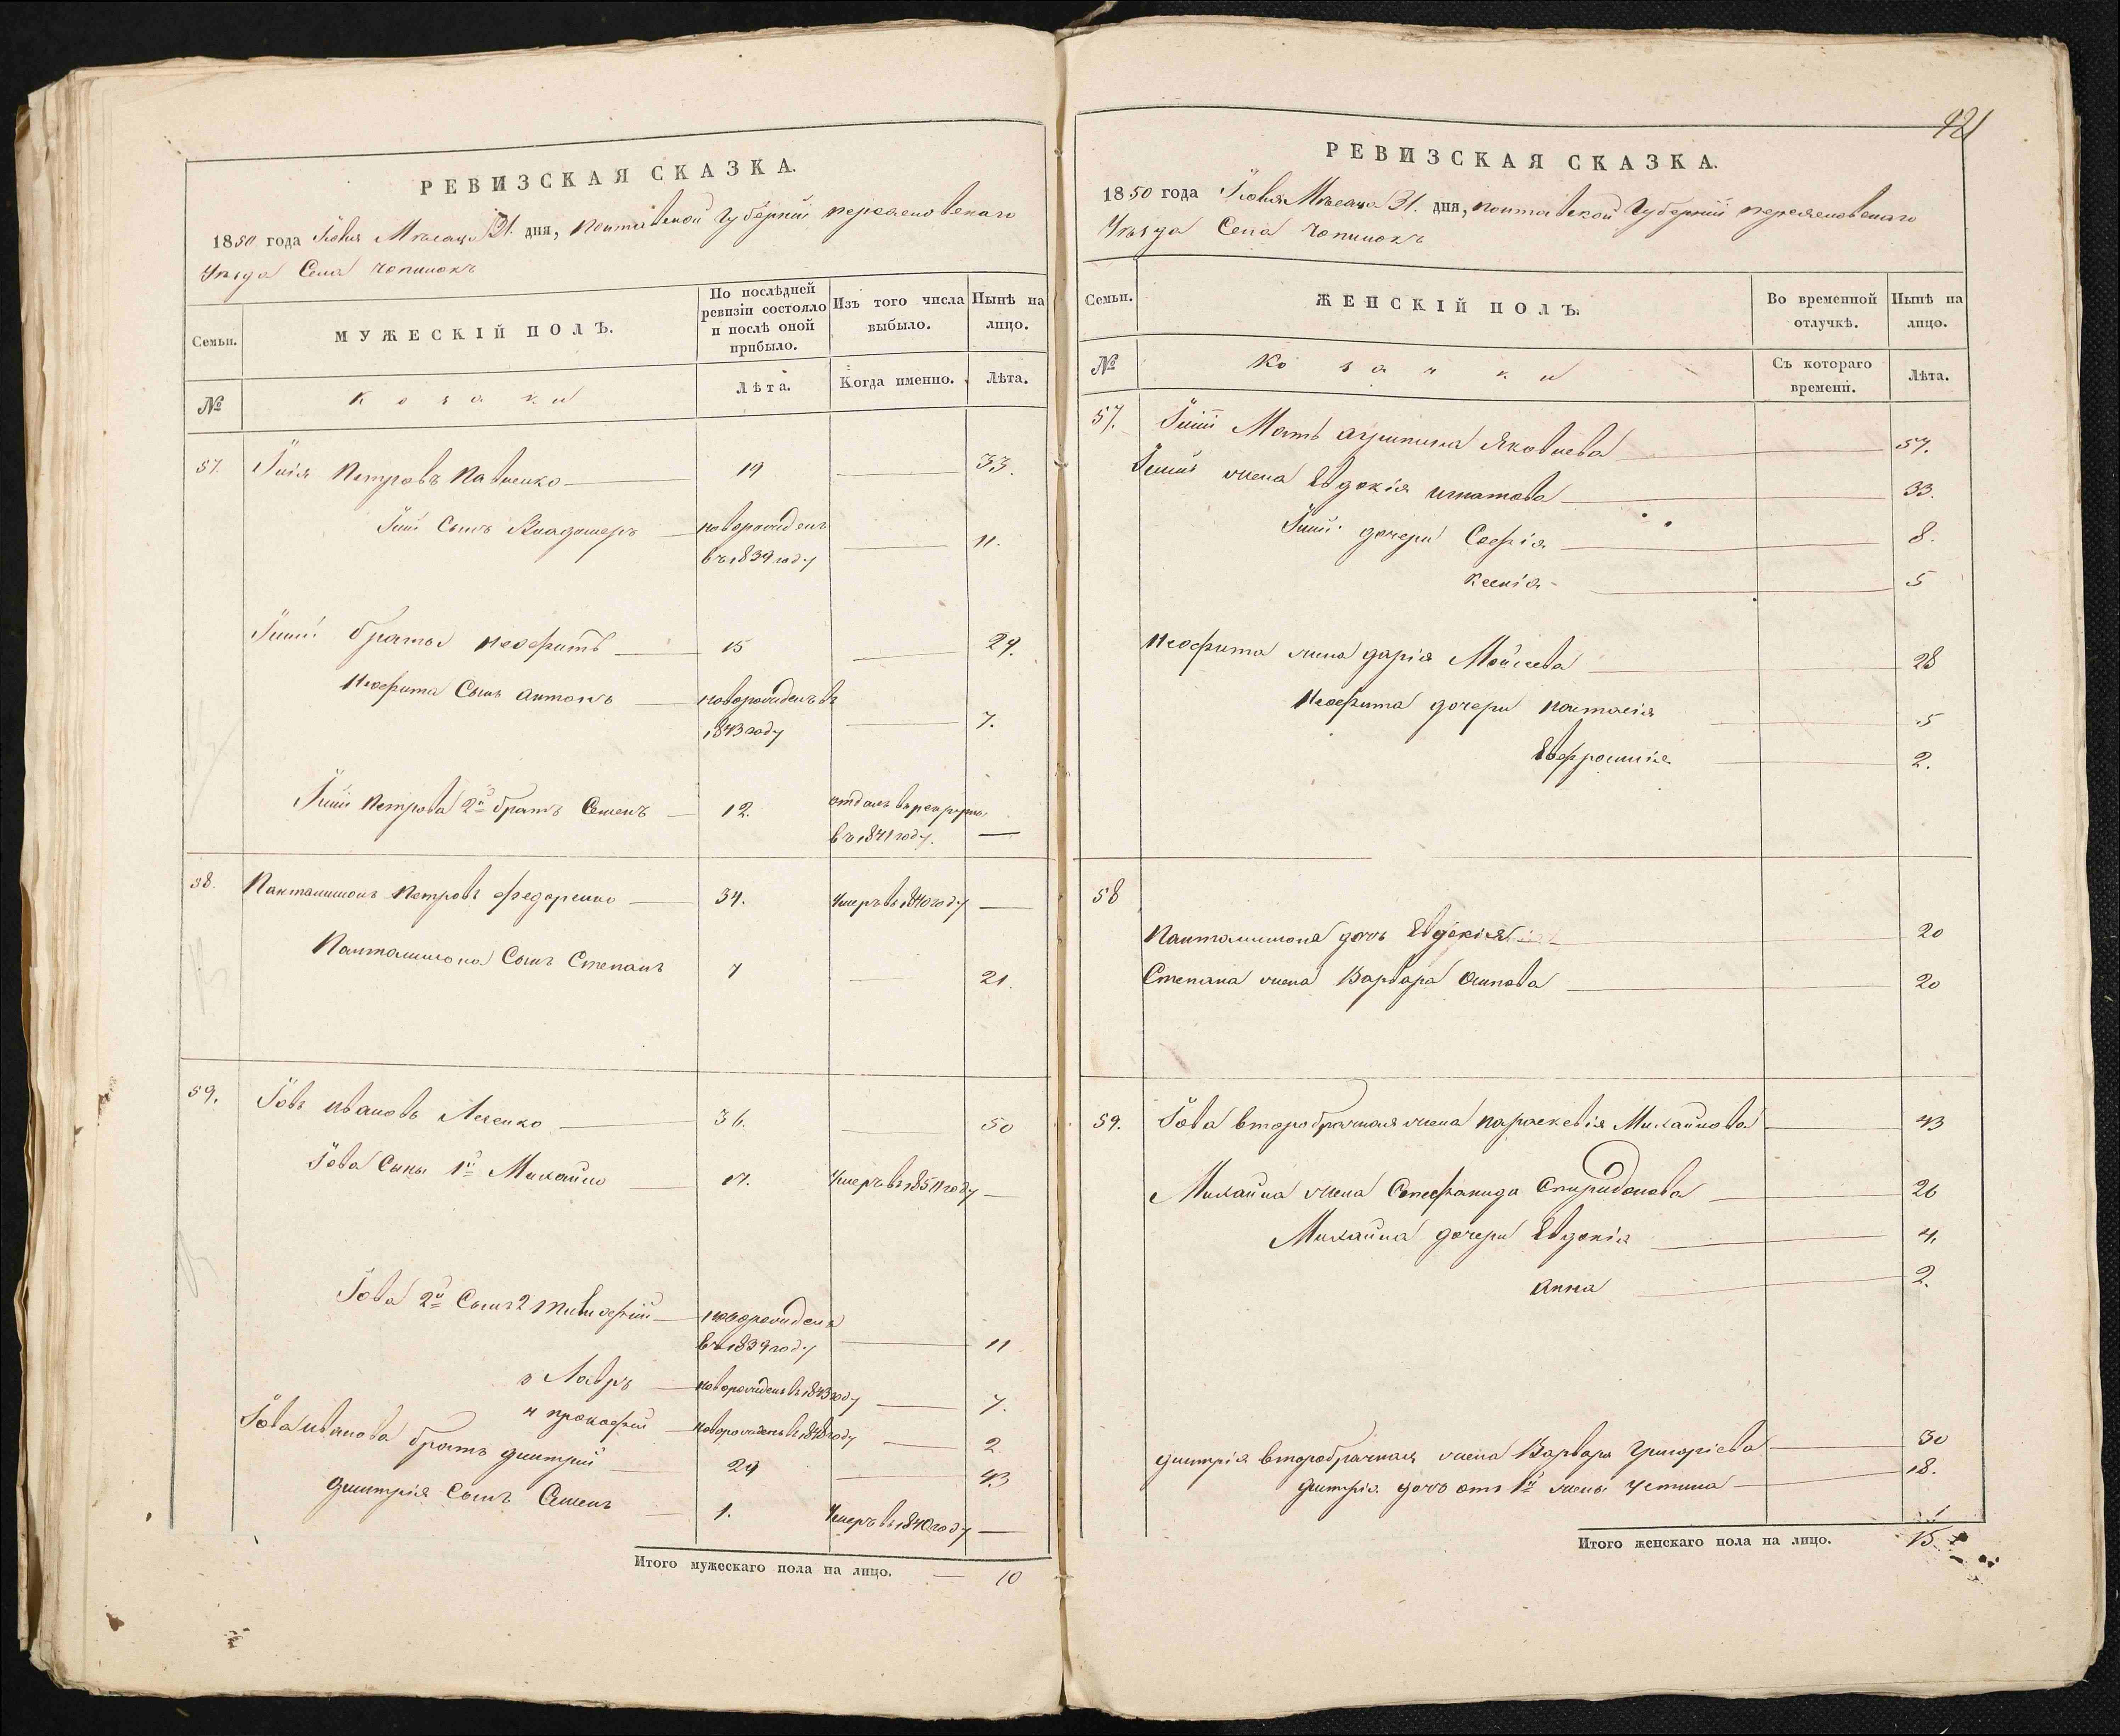 РЕВИЗСКАЯ СКАЗКА.
1850 года Іюня Мѣсяца 31. дня, полтавской Губерніи переяславскаго
Уѣзда Села Чопилокъ
Семьи.
МУЖЕСКІЙ ПОЛЪ.
По послѣдней ревизіи состояло и послѣ оной прибыло.
Изъ того числа выбыло.
Нынѣ на лицо.
№
козаки
Лѣта.
Когда именно.
Лѣта.
57. Илія Петровъ Павленко 19 33.
Иліи Сынъ Владимеръ новорожденъ 11.
въ 1839 году
Иліи братья Неофитъ 15 29.
Неофита Сынъ антонъ новорожденъ въ 7.
1843 году
Иліи Петрова 2й братъ Семенъ 12. отданъ в рекруты
въ 1841 году.
58. Панталимонъ Петровъ федоренко 34. Умеръ въ 1840 году
Панталимона Сынъ Степанъ 7 21.
59. Іовъ ивановъ 36. 50
Іова Сыны 1й Михайло 17. Умеръ въ 1850 году
Іова 2й Сынъ 2 новорожденъ
въ 1839 году 11
3 Лавръ новорожденъ въ 1843 году 7.
4 прокофій новорожденъ въ 1848 году 2
Іова иванова братъ дмитрій 29 43
дмитрія Сынъ Семенъ 1. Умеръ въ 1840 году
Итого мужескаго пола на лицо. 10
421
РЕВИЗСКАЯ СКАЗКА.
1850 года Іюня Мѣсяца 31. дня, полтавской Губерніи переяславскаго
Уѣзда Села Чопилокъ
Семьи.
ЖЕНСКІЙ ПОЛЪ.
Во временной отлучкѣ.
Нынѣ на лицо.
№
козачки
Съ котораго времени.
Лѣта.
57. Иліи Мать агрипина Яковлева 57.
Иліи жена Евдокія игнатова 33.
Иліи дочери Софія 8.
Ксенія 5
Неофита жена дарія Мойсеева 28
Неофита дочери настасія 5
Евфросинія 2.
58
Панталимона дочь Евдокія 20
Степана жена Варвара осипова 20
59. Іова второбрачная жена параскевія Михайлова 43
Михайла жена Стефанида Спиридонова 26
Михайла дочери Евдокія 4.
анна 2.
дмитрія второбрачная жена Варвара Григоріева 30
дмитрія дочь отъ 1й жены устина 18.
Итого женскаго пола на лицо. 15